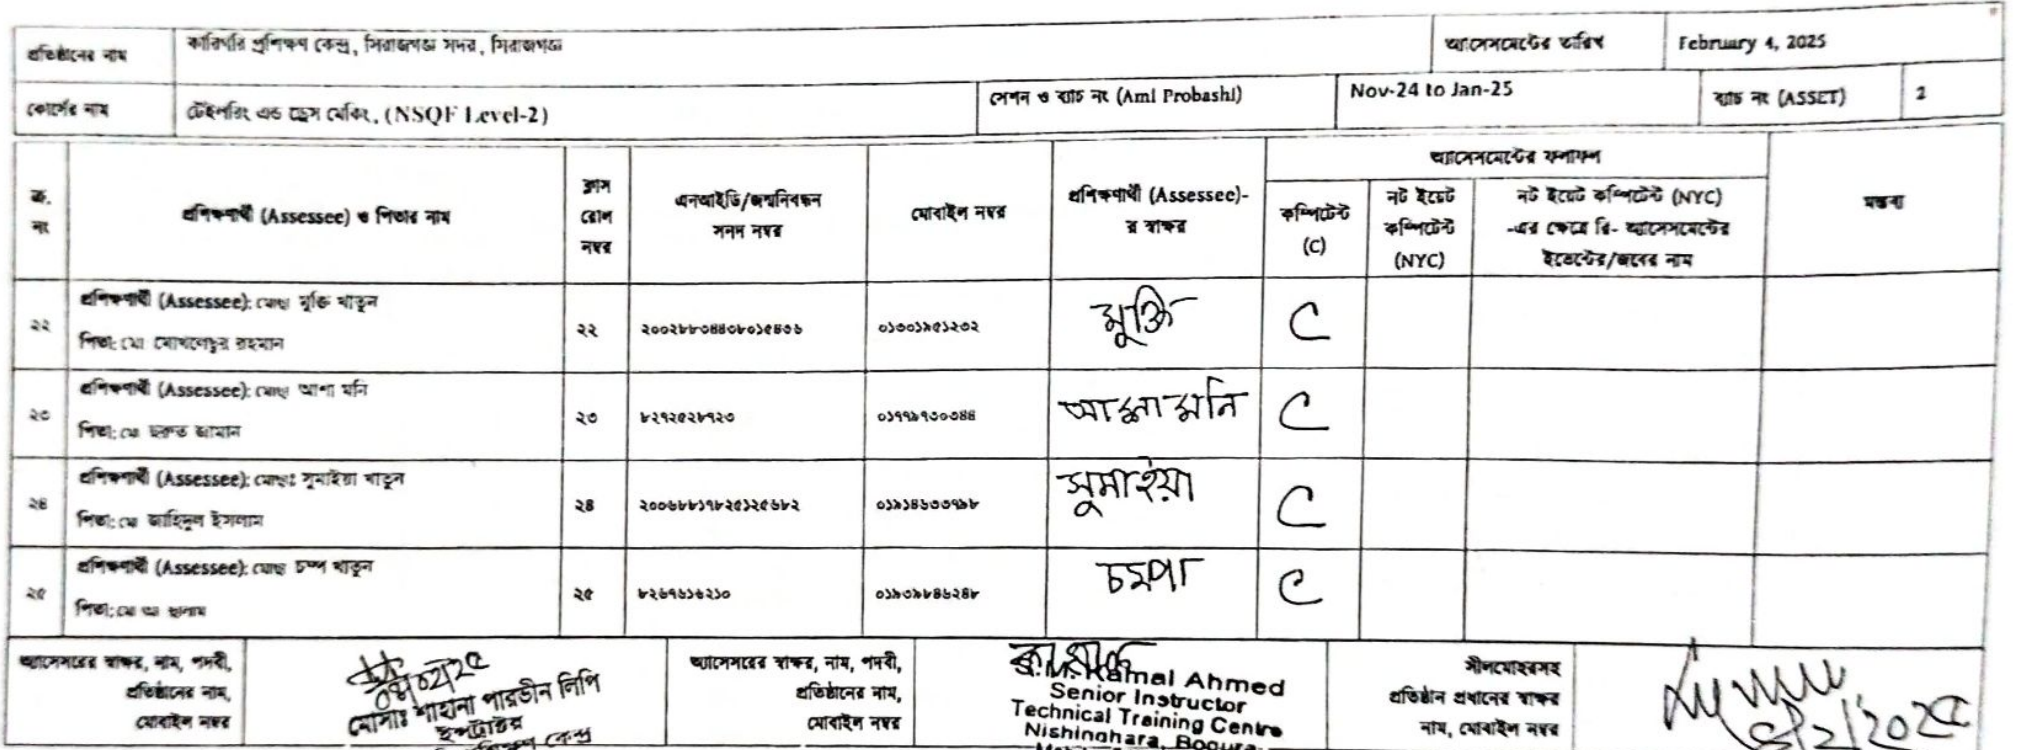 প্রতিষ্ঠানের নাম
কারিগরি প্রশিক্ষণ কেন্দ্র, সিরাজগঞ্জ সদর, সিরাজগঞ্জ
অ্যাসেসমেন্টের তারিখ
February 4, 2025
কোর্সের নাম
টেইলরিং এন্ড ড্রেস মেকিং, (NSQF Level-2)
সেশন ও ব্যাচ নং (Ami Probashi)
Nov-24 to Jan-25
ব্যাচ নং (ASSET)
2
ক্র. নং
প্রশিক্ষণার্থী (Assessee) ও পিতার নাম
ক্লাস
রোল
নম্বর
এনআইডি/জন্মনিবন্ধন
সনদ নম্বর
মোবাইল নম্বর
প্রশিক্ষণার্থী (Assessee)-
র স্বাক্ষর
অ্যাসেসমেন্টের ফলাফল
কম্পিটেন্ট
(C)
নট ইয়েট
কম্পিটেন্ট
(NYC)
নট ইয়েট কম্পিটেন্ট (NYC)
-এর ক্ষেত্রে রি- অ্যাসেসমেন্টের
ইভেন্টের/জবের নাম
মন্তব্য
২২
প্রশিক্ষণার্থী (Assessee): মোছাঃ মুক্তি খাতুন
পিতা: মো মোখলেছুর রহমান
২২
২০০২৮৮৩৪৪৩৮০১৫৪৩৬
০১৩০১৯৫১২৩২
মুক্তি
C
২৩
প্রশিক্ষণার্থী (Assessee): মোছাঃ আশা মনি
পিতা: মো জামান
২৩
৮২৭২৫২৮৭২৩
০১৭৭৯৭৩০৩৪৪
আশা মনি
C
২৪
প্রশিক্ষণার্থী (Assessee): মোছাঃ সুমাইয়া খাতুন
পিতা: মো জাহিদুল ইসলাম
২৪
২০০৬৮৮১৭৮২৫১২৫৬৮২
০১৯১৪৬৩৩৭৯৮
সুমাইয়া
C
২৫
প্রশিক্ষণার্থী (Assessee): মোছাঃ চম্পা খাতুন
পিতা: মো আঃ ছালাম
২৫
৮২৬৭৬১৬২১০
০১৯৩৯৮৪৬২৪৮
চম্পা
C
অ্যাসেসরের স্বাক্ষর, নাম, পদবী,
প্রতিষ্ঠানের নাম,
মোবাইল নম্বর
০৪/০২/২৫
মোসাঃ শাহানা পারভীন লিপি
ইন্সট্রাক্টর
প্রশিক্ষণ কেন্দ্র
অ্যাসেসরের স্বাক্ষর, নাম, পদবী,
প্রতিষ্ঠানের নাম,
মোবাইল নম্বর
Kamal Ahmed
Senior Instructor
Technical Training Centre
Nishindhara, Bogura.
সীলমোহরসহ
প্রতিষ্ঠান প্রধানের স্বাক্ষর
নাম, মোবাইল নম্বর